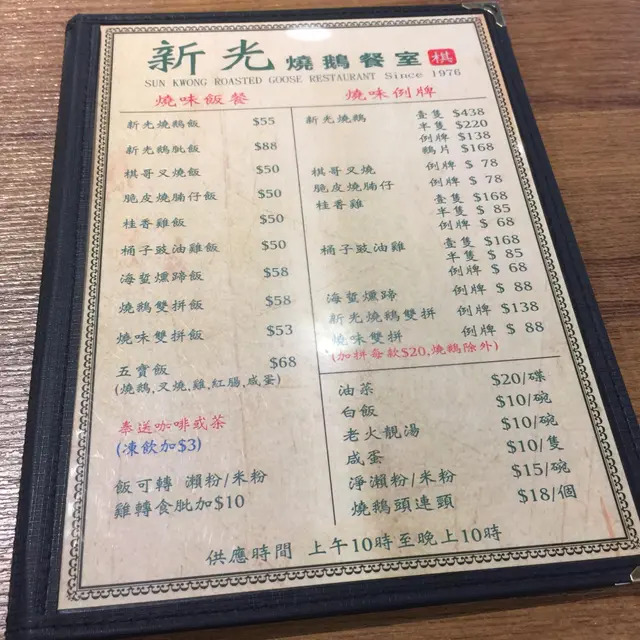 新光燒鵝餐室 棋
SUN KWONG ROASTED GOOSE RESTAURANT Since 1976
燒味飯餐
新光燒鵝飯 $55
新光鵝髀飯 $88
棋哥叉燒飯 $50
脆皮燒腩仔飯 $50
桂香雞飯 $50
桶子豉油雞飯 $50
海蜇燻蹄飯 $58
燒鵝雙拼飯 $58
燒味雙拼飯 $53
五寶飯 $68
(燒鵝,叉燒,雞,紅腸,咸蛋)
奉送咖啡或茶
(凍飲加$3)
飯可轉 瀨粉/米粉
雞轉食肶加$10
燒味例牌
新光燒鵝 壹隻 $438
半隻 $220
例牌 $138
鵝片 $168
棋哥叉燒 例牌 $ 78
脆皮燒腩仔 例牌 $ 78
桂香雞 壹隻 $168
半隻 $ 85
例牌 $ 68
桶子豉油雞 壹隻 $168
半隻 $ 85
例牌 $ 68
海蜇燻蹄 例牌 $ 88
新光燒鵝雙拼 例牌 $138
燒味雙拼 例牌 $ 88
(加拼每款$20,燒鵝除外)
油菜 $20/碟
白飯 $10/碗
老火靚湯 $10/碗
咸蛋 $10/隻
淨瀨粉/米粉 $15/碗
燒鵝頭連頸 $18/個
供應時間 上午10時至晚上10時